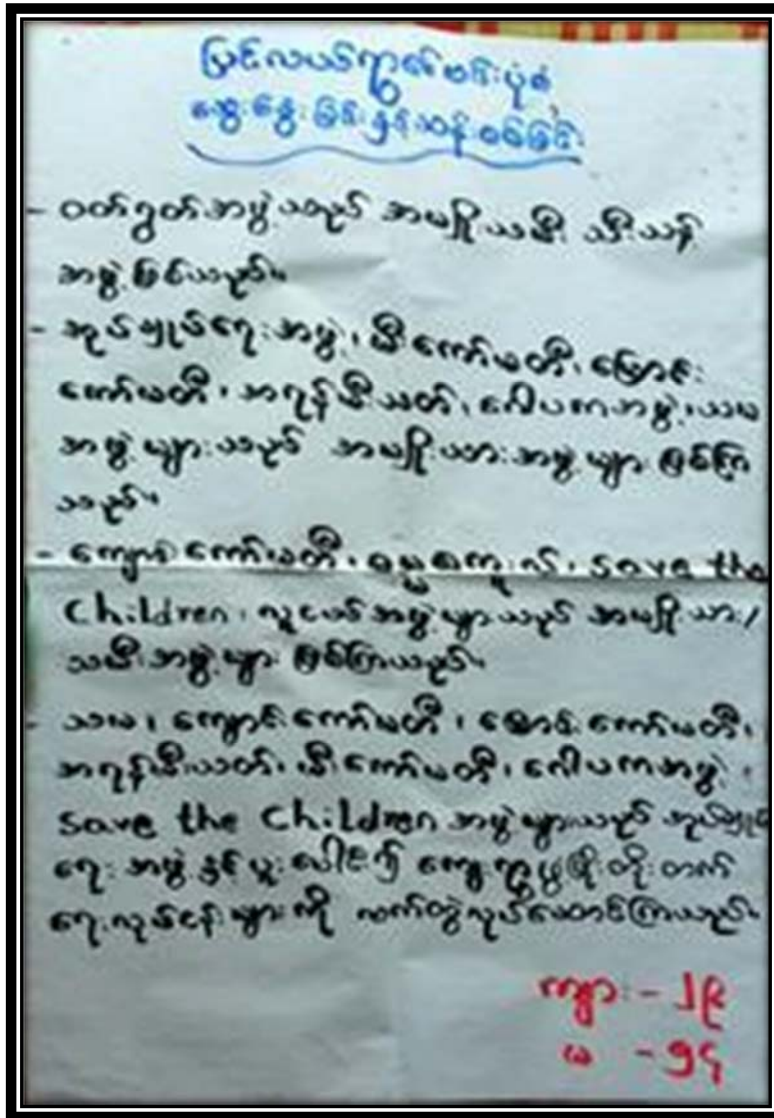 ပြင်လယ်ရွာ၏ဗင်းပုံစံ
ဆွေးနွေးခြင်းနှင့်သန်းစစ်ခြင်း
- ဝတ်ရွတ်အဖွဲ့သည် အမျိုးသမီး သီးသန့်
အဖွဲ့ဖြစ်သည်။
- အုပ်ချုပ်ရေးအဖွဲ့၊ မီးကော်မတီ၊ မြောင်း
ကော်မတီ၊ အရန်မီးသတ်၊ ဂေါပကအဖွဲ့၊ သမ
အဖွဲ့များသည် အမျိုးသားအဖွဲ့များ ဖြစ်ကြ
သည်။
- ကျောင်းကော်မတီ၊ ဓမ္မစကူးလ်၊ save the
Children၊ လူငယ်အဖွဲ့များသည် အမျိုးသား/
သမီးအဖွဲ့များ ဖြစ်ကြသည်။
- သမ၊ ကျောင်းကော်မတီ၊ မြောင်းကော်မတီ၊
အရန်မီးသတ်၊ မီးကော်မတီ၊ ဂေါပကအဖွဲ့၊
save the Children အဖွဲ့များသည် အုပ်ချုပ်
ရေးအဖွဲ့နှင့်ပူးပေါင်း၍ ကျေးရွာဖွံ့ဖြိုးတိုးတက်
ရေးလုပ်ငန်းများကို လက်တွဲလုပ်ဆောင်ကြသည်။
ကျား - ၂၉
မ - ၅၄